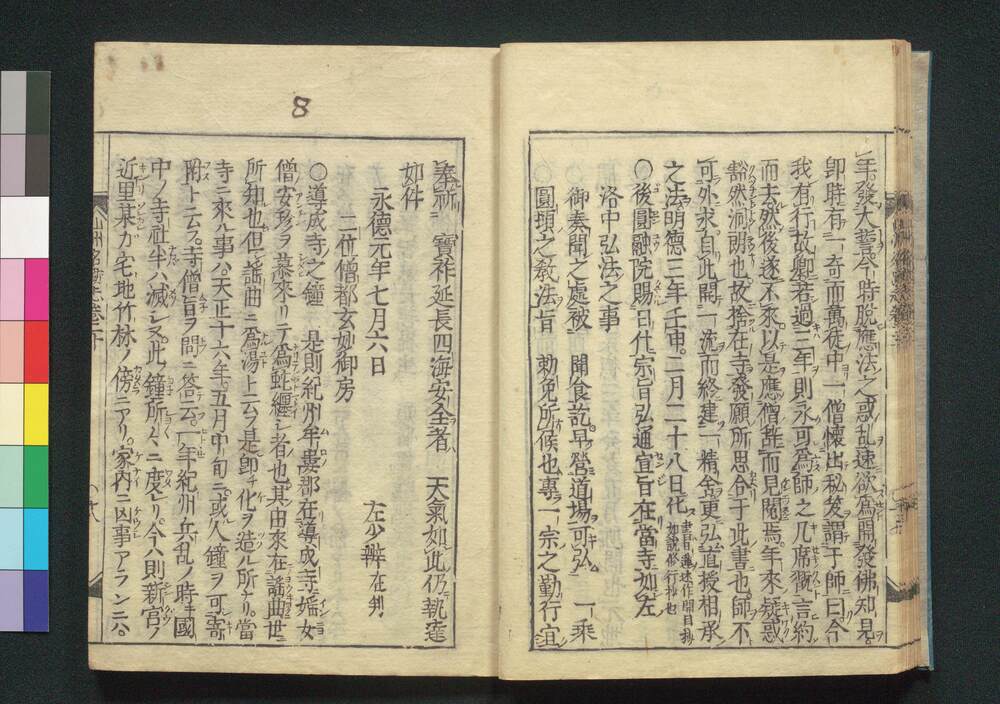 年發大誓令時脫應法之惑乱速欲爲開發佛知見
卽時有一奇而萬徒中一僧懷出秘笈謂于師曰今
我有行故鄕若過三年則永可爲師之几席慨言約
而去然後遂不來以是應僧辭而見閲焉年來疑惑
豁然洞明也故捨在寺發願所思合于此書也師不
可外求自此開一流而終建一精舍更弘道授相承
之法明德三年壬申二月二十八日化
如說修行抄也
〇後圓融院賜日代宗旨弘通宣旨在當寺如左
洛中弘法之事
御奏聞之處被聞食訖早營道場可弘一乘
圓頓之敎法旨勅免所候也專一宗之勤行宜
奉祈寶祚延長四海安全者天氣如此仍執達
如件
永德元年七月六日左少辨在判
二位僧都玄妙御房
〇導成寺之鐘是則紀州牟婁郡在導成寺婬女
僧安珍ヲ慕來リテ爲蛇纒シ者也其由來在謠曲世ニ
所知也但シ謠曲ニ爲湯上云ヲ是卽チ化ヲ造ル所ナリ當
寺ニ來ル事ハ天正十六年五月中旬ニ或人鐘ヲ可寄
附ト云フ寺僧旨ヲ問ニ答云一年紀州兵乱ノ時キ國
中ノ寺社半ハ滅シヌ此鐘所々ニ度レリ今ハ則新宮ノ
近里某カ宅地竹林ノ傍ニアリ家内ニ凶事アラン二八
山州名跡志卷二十
8